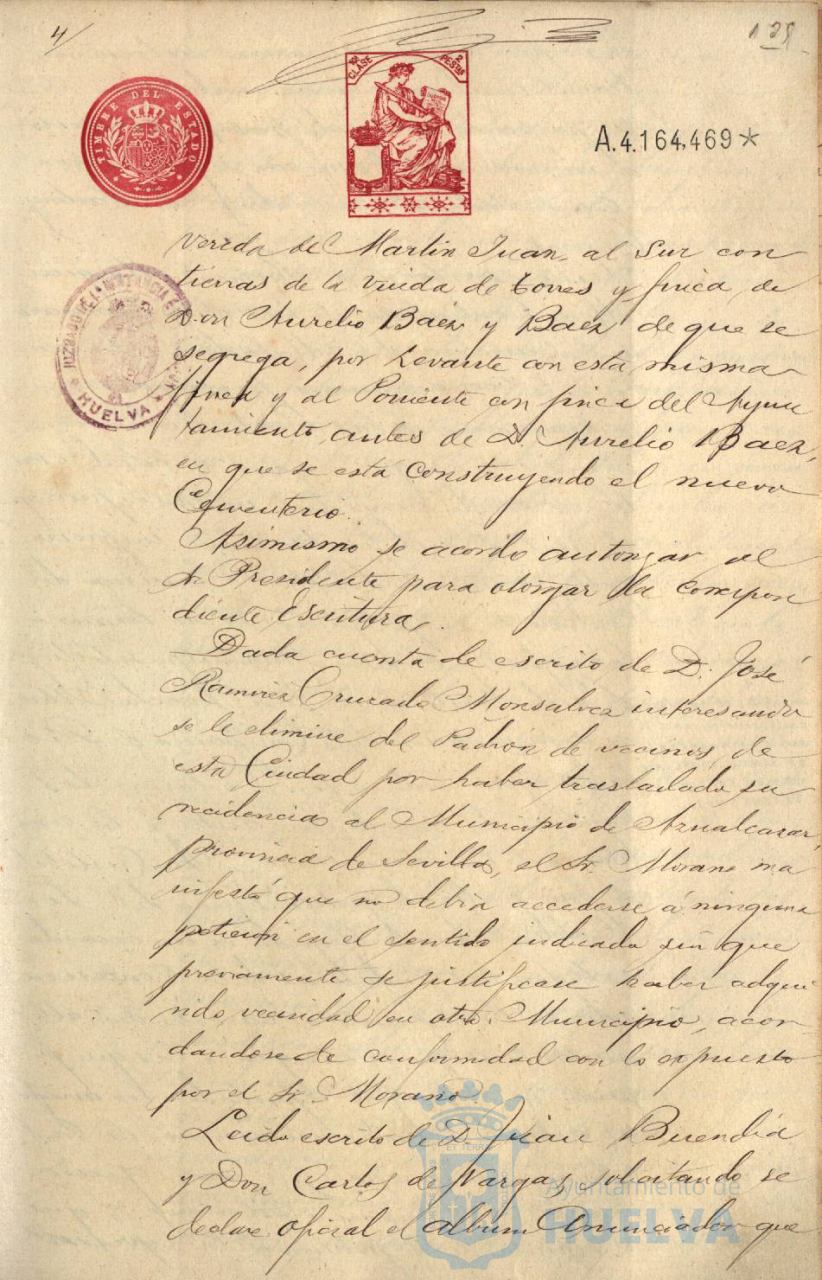 4/
129
TIMBRE DEL ESTADO
10ª CLASE
2 PESTAS
A.4.164,469*
JUZGADO DE 1ª INSTANCIA
HUELVA
vereda de Martin Juan, al Sur con
tierras de la viuda de Torres y finca de
Don Aurelio Báez y Báez de que se
segrega, por Levante con esta misma
finca y al Poniente con finca del Ayun
tamiento, antes de D. Aurelio Baez,
en que se está construyendo el nuevo
Cementerio.
Asimismo se acordó autorizar al
Sr. Presidente para otorgar la correspon
diente Escritura.
Dada cuenta de escrito de D. José
Ramirez Cruzado Monsalvez interesando
se le elimine del Padrón de vecinos de
esta Ciudad por haber trasladado su
recidencia al Municipio de Aznalcazar,
provincia de Sevilla, el Sr. Morano ma
nifestó que no debia accederse á ninguna
petición en el sentido indicado sin que
previamente se justificase haber adqui
rido vecindad en otro Municipio, acor
dandose de conformidad con lo expuesto
por el Sr. Morano.
Leido escrito de D. Juan Buendía
y Don Carlos de Vargas, solicitando se
declare oficial el album Anunciador que
Ayuntamiento de
HUELVA